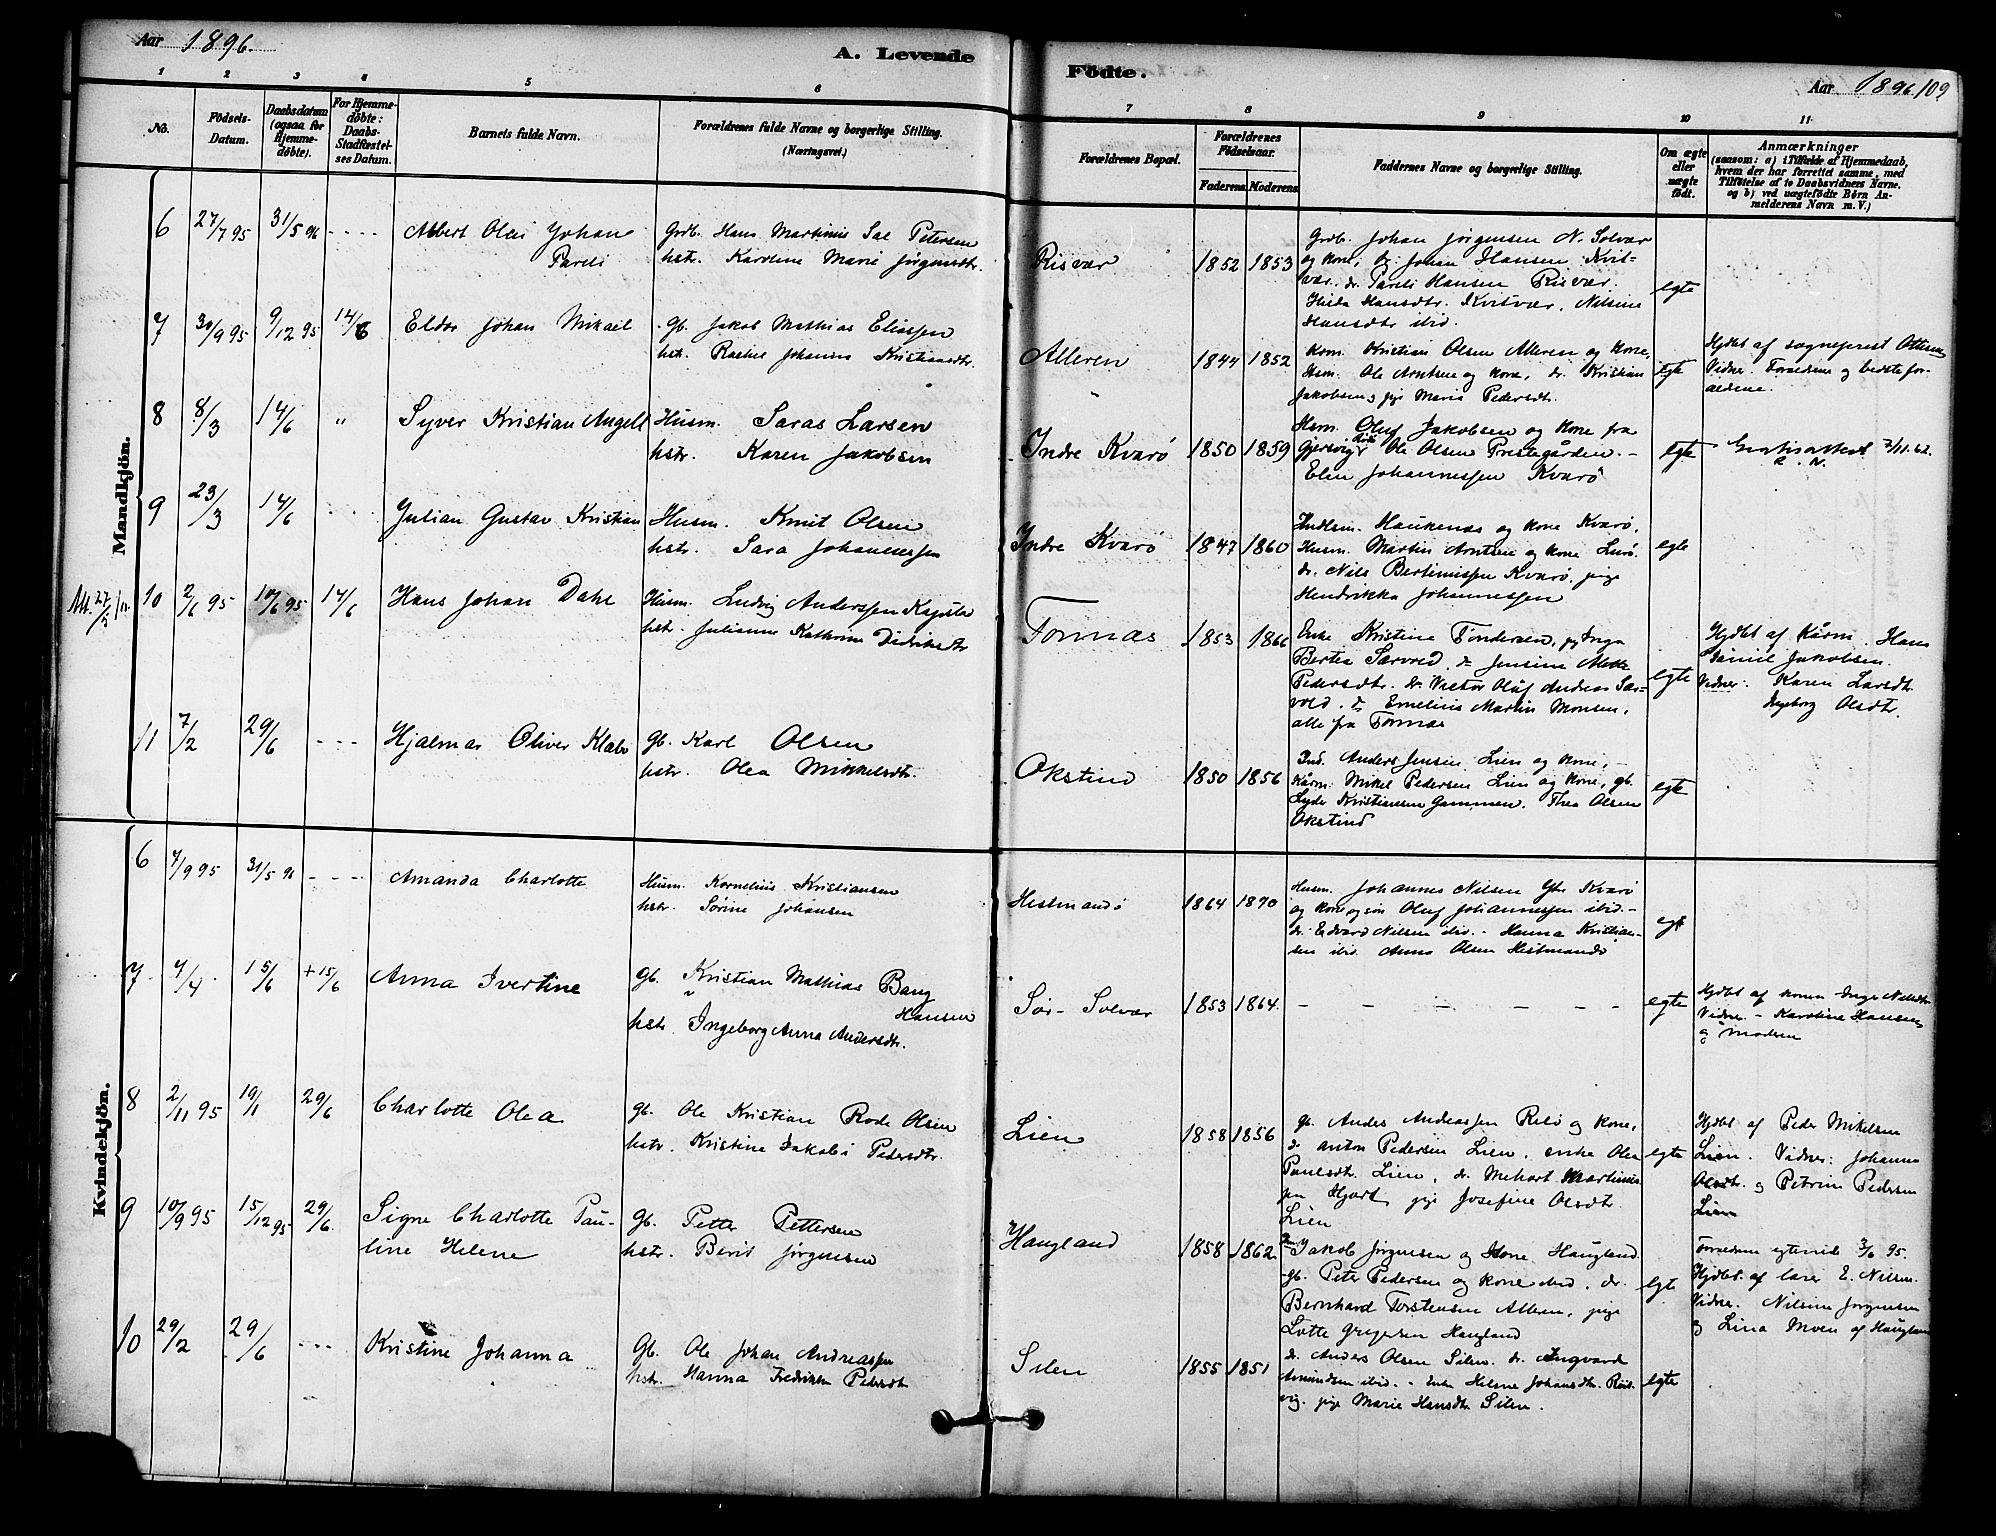 Aar 1896.
A. Levende
Födte.
Aar 1896. 109
1 2 3 4 5 6 7 8 9 10 11
No.
Födsels-
Datum.
Daabsdatum
(ogsaa for
Hjemme-
döbte).
For Hjemme-
döbte:
Daabs-
Stadfæstel-
ses Datum.
Barnets fulde Navn.
Forældrenes fulde Navne og borgerlige Stilling.
(Næringsvei.)
Forældrenes Bopæl.
Forældrenes
Födselsaar.
Faderens. Moderens.
Faddernes Navne og borgerlige Stilling.
Om ægte
eller
uægte
födt.
Anmærkninger
(saasom: a) i Tilfælde af Hjemmedaab,
hvem der har forrettet samme, med
Tilföielse af to Daabsvidners Navne.
og b) ved uægtefödte Börn An-
melderens Navn m. V.)
Mandkjön.
6 27/7 95 31/5 96 - - - - Albert Olai Johan
Pareli
Grdb. Hans Martinus Sal Petersen
hstr. Karoline Marie Jørgensdtr.
Risvær 1852 1853
Grdb. Johan Jørgensen N. Solvær
og kone, dr. Johan Hansen Kvit-
vær. dr. Pareli Hansen Risvær.
Hilda Hansdtr. Kvitvær, Nilsine
Hansdtr ibid.
egte
7 30/9 95 9/12 95 14/6 Eldor Johan Mikail
Gb. Jakob Mathias Eliassen
hstr. Rachel Johanna Kristiansdtr.
Alleren 1844 1852
Kom. Kristian Olsen Alleren og kone,
Hsm. Ole Arntsen og kone, dr. Kristian
Jakobsen, pige Maria Pedersdtr.
egte
Hjdbt af sogneprest Ottesen
Vidner. Forældrene og bedstefor-
ældrene.
8 8/3 14/6 " Syver Kristian Angell
Husm. Saras Larsen
hstr. Karen Jakobsen
Indre Kvarø 1850 1859
Hsm. Oluf Jakobsen og kone fra
Gjersvig Ole Olsen Prestegården. -
Elen Johannessen Kvarø
egte
7/11.62.
9 23/3 14/6 Julian Gustav Kristian
Husm. Knut Olsen
hstr. Sara Johannessen
Indre Kvarø 1847 1860
Indlsm. Haukenæs og kone Kvarø.
Husm. Martin Arntsen og kone Lurø.
dr. Nils Bertinussen Kvarø, pige
Hendrikka Johannessen
egte
10 2/6 95 10/6 95 14/6 Hans Johan Dahl
Husm. Ludvig Anderssen
hstr. Julianna Kathrina Didriksdtr
Tonnæs 1853 1866
Enke Kristina Tondersen, pg Inga
Bertea Sørvold, Jensine
Pedersdtr. dr Victor Oluf Andreas Sør-
vold. Emelius Martin Monsen,
alle fra Tonnæs
egte
Hjdbt af Kårm. Hans
Daniel Jakobsen.
Vidner: Karen Larsdtr.
Ingeborg Olsdtr.
11 7/2 29/6 - - - Hjalmar Oliver Klabo
gb. Karl Olsen
hstr. Olea Mikkelsdtr.
Okstind 1850 1856
Ind. Anders Jensen Lien og kone, -
Kårm. Mikel Pedersen Lien og kone, gb.
Lyder Kristiansen Gammen. Thea Olsen
Okstind
egte
Kvindekjön.
6 7/9 95 31/5 96 - - - - Amanda Charlotte
Husm. Kornelius Kristiansen
hstr. Sørine Johansen
Hestmandø 1864 1870
Husm. Johannes Nilsen Ytr Kvarø
og kone og søn Oluf Johannessen ibid. -
dr. Edvard Nilsen ibid. - Hanna Kristian-
sen ibid. Anna Olsen Hestmandø
egt
7 4/4 15/6 + 15/6 Anna Ivertine
gb. Kristian Mathias Bang
Hansen
hstr. Ingeborg Anna Andersdtr.
Sør-Solvær 1853 1864.
- - - - - -
egte
Hjdbt af konen Inger Nilsdtr
Vidner - Karoline Hansen
og moderen
8 2/11 95 19/1 29/6 Charlotte Olea
gb. Ole Kristian Rode Olsen
hstr. Kristine Jakobi Pedersdtr.
Lien 1858 1856
gb. Anders Andreassen Relø og kone,
dr anton Pedersen Lien, enke Olea
Paulsdtr. Lien, dr. Mehart Martinus-
sen Hjart, pige Josefine Olsdtr.
Lien
egte
Hjdbt af Peder Mikelsen
Lien. Vidner: Johanna
Olsdtr. og Petrine Pedersen
Lien
9 10/9 95 15/12 95 29/6 Signe Charlotte Pau-
line Helene
gb. Petter Pettersen
hstr. Berit Jørgensen
Haugland 1858 1862
Jakob Jørgensen og kone Haugland
gb. Peter Pedersen og kone ibid, dr.
Bernhard Torstensen Alleren, pige
Lotte Gregersen Haugland
egte
Forældrene egteviet 3/6 95.
Hjdbt af lærer E. Nilsen.
Vidner. Nilsine Jørgensen
og Lina Moen af Haugland
10 29/2 29/6 - - - Kristine Johanna
Gb. Ole Johan Andreassen
hstr. Hanna Fredrikke Pedersdtr
Silen 1855 1851
dr. Anders Olsen Silen. dr. Ingvard
Amundsen ibid. - Enke Helene Johansdtr. Røit-
vig. pige Marie Hansdtr. Silen.
egte